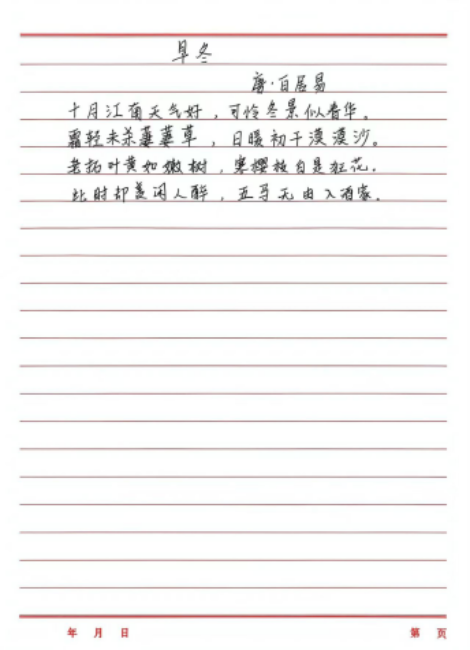 早冬
唐·白居易
十月江南天气好，可怜冬景似春华。
霜轻未杀萋萋草，日暖初干漠漠沙。
老柘叶黄如嫩树，寒樱枝白是狂花。
此时却羡闲人醉，五马无由入酒家。
年 月 日 第 页